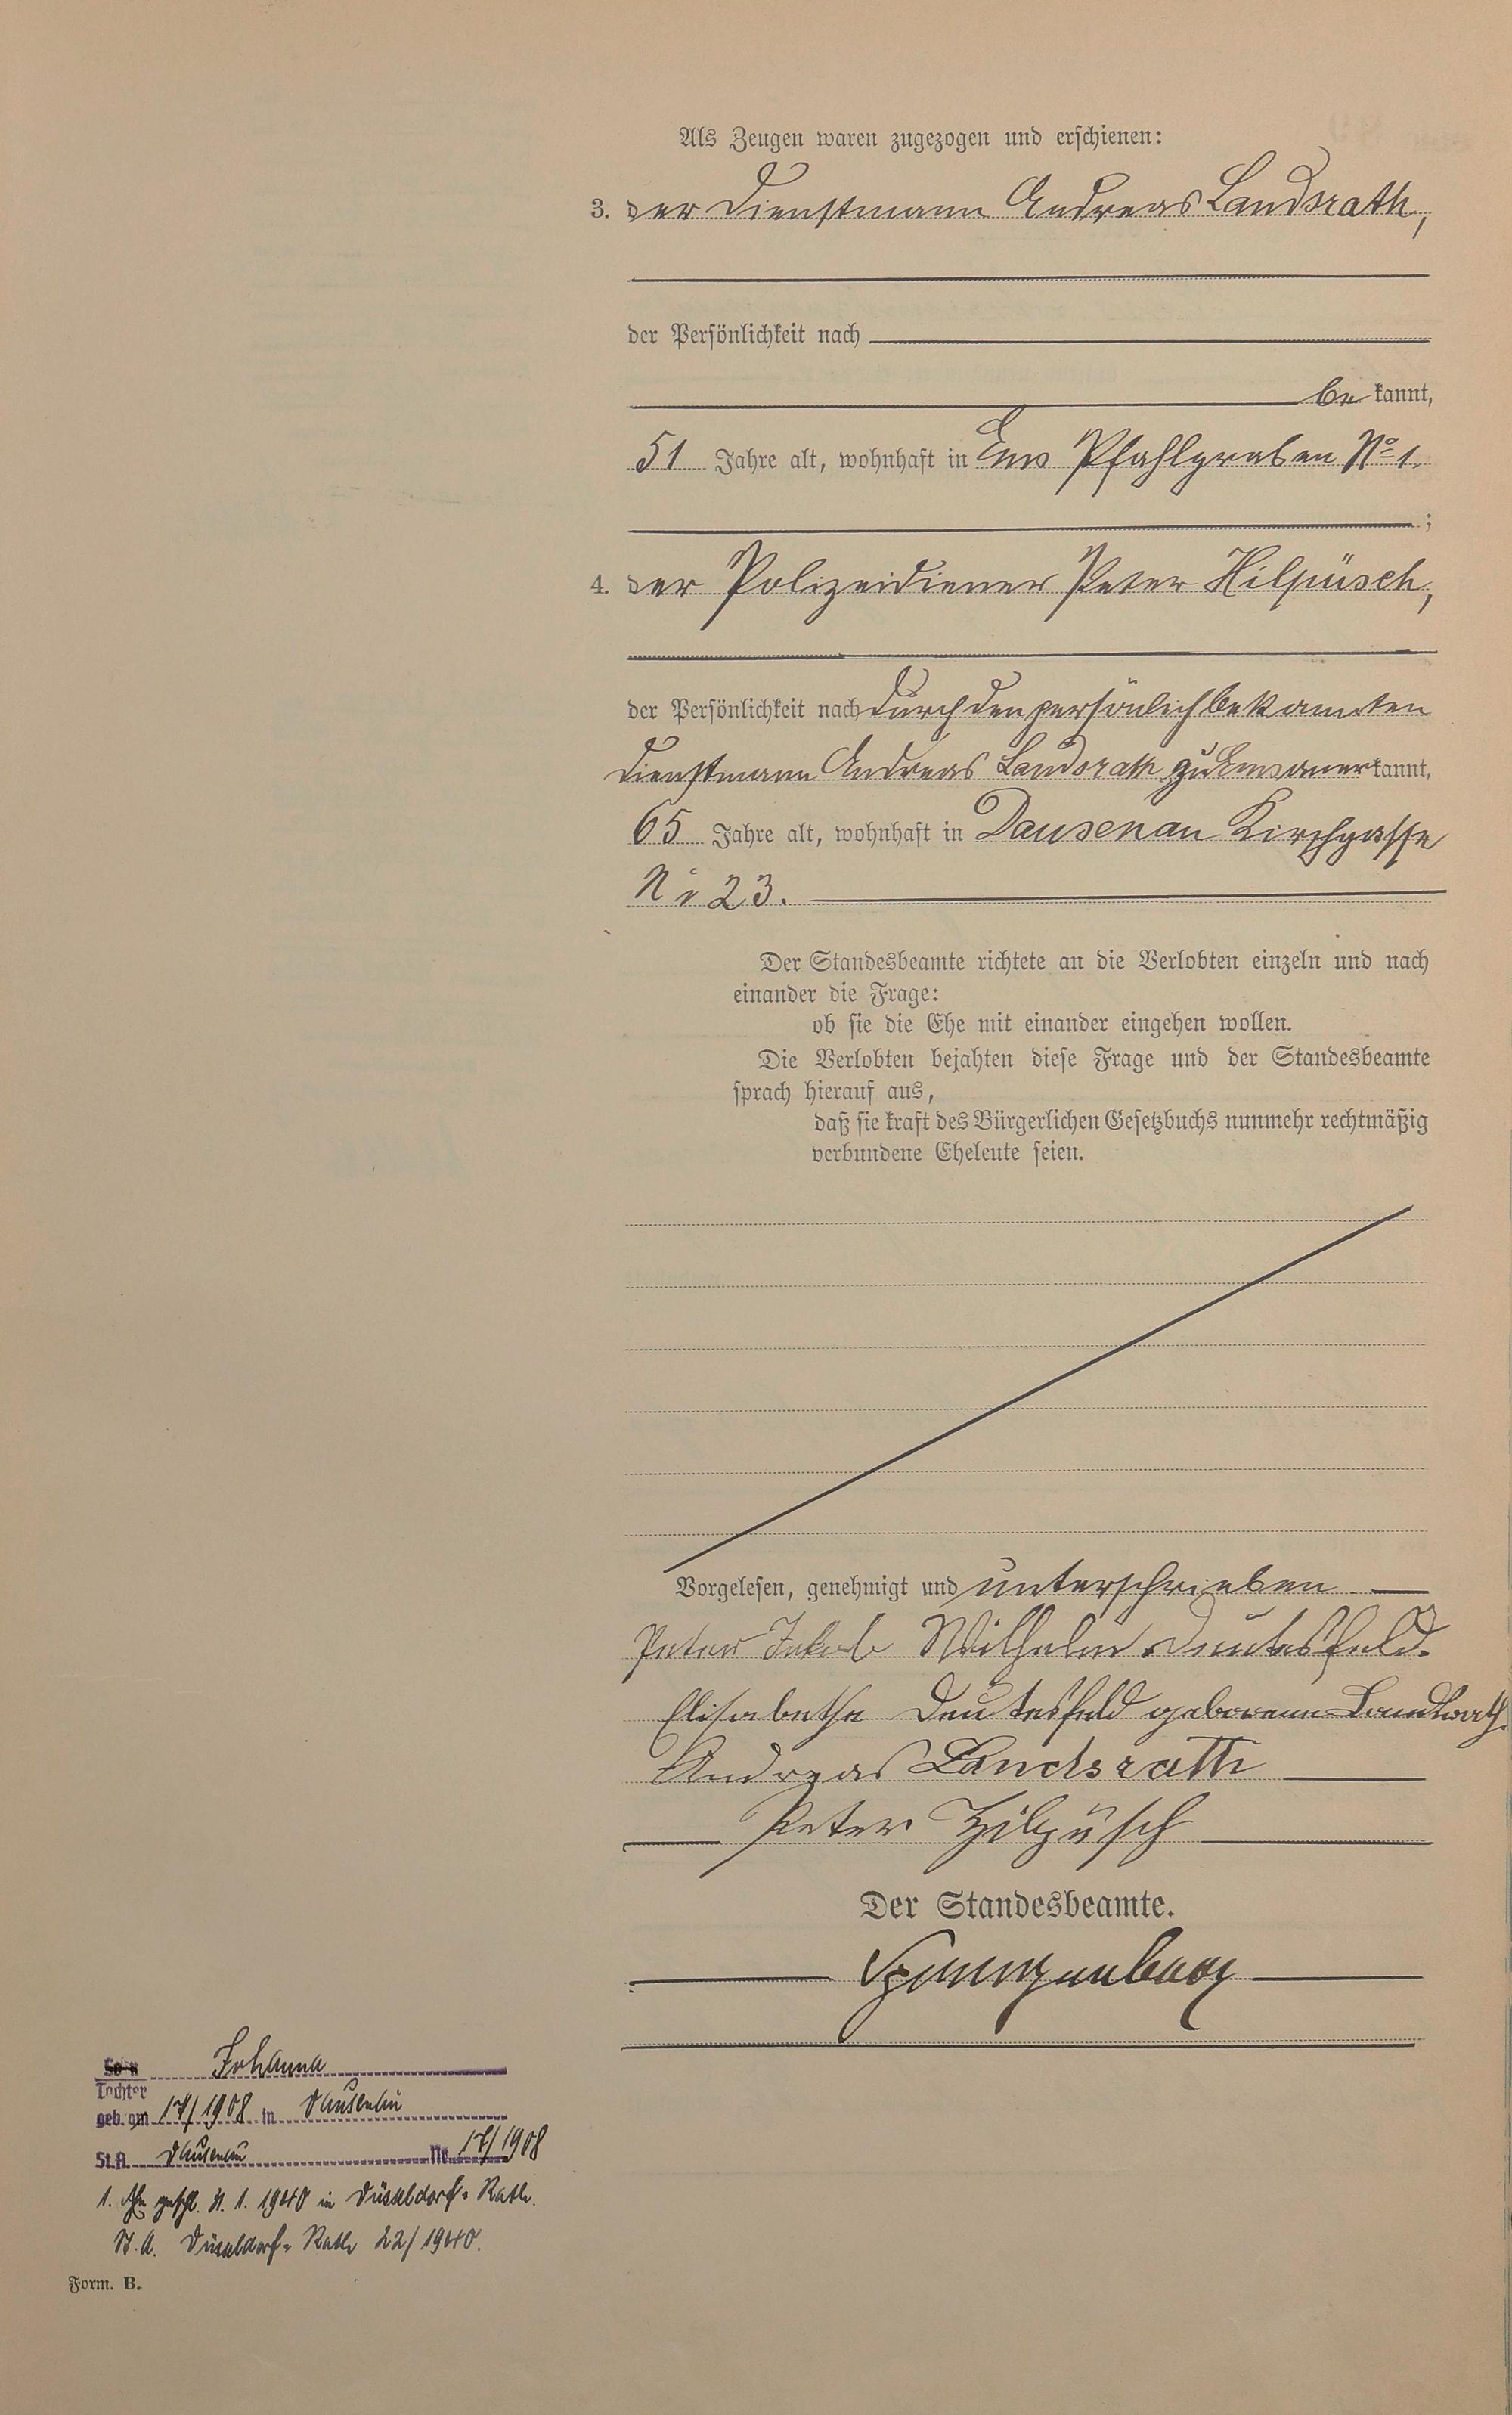 Als Zeugen waren zugezogen und erschienen:
3. der Dienstmann Andreas Landsrath,
der Persönlichkeit nach
be kannt,
51 Jahre alt, wohnhaft in Ems Pfahlgraben No 1.
;
4. der Polizeidiener Peter Hilpüsch,
der Persönlichkeit nach durch den persönlich bekannten
Dienstmann Andreas Landsrath zu Ems anerkannt,
65 Jahre alt, wohnhaft in Dausenau Kirchgasse
No 23.
Der Standesbeamte richtete an die Verlobten einzeln und nach
einander die Frage:
ob sie die Ehe mit einander eingehen wollen.
Die Verlobten bejahten diese Frage und der Standesbeamte
sprach hierauf aus,
daß sie kraft des Bürgerlichen Gesetzbuchs nunmehr rechtmäßig
verbundene Eheleute seien.
Vorgelesen, genehmigt und unterschrieben
Peter Jakob Wilhelm Deutesfeld.
Elisabetha Deutesfeld geborene Landsrath.
Andreas Landsrath
Peter Hilpüsch
Der Standesbeamte.
Sohn Johanna
Tochter
geb. am 17/1908 in Dausenau
St.A. Dausenau Nr. 17/1908
1. Ehe geschl. 1. 1940 in Düsseldorf-Rath.
St. A. Düsseldorf-Rath 22/1940.
Form. B.